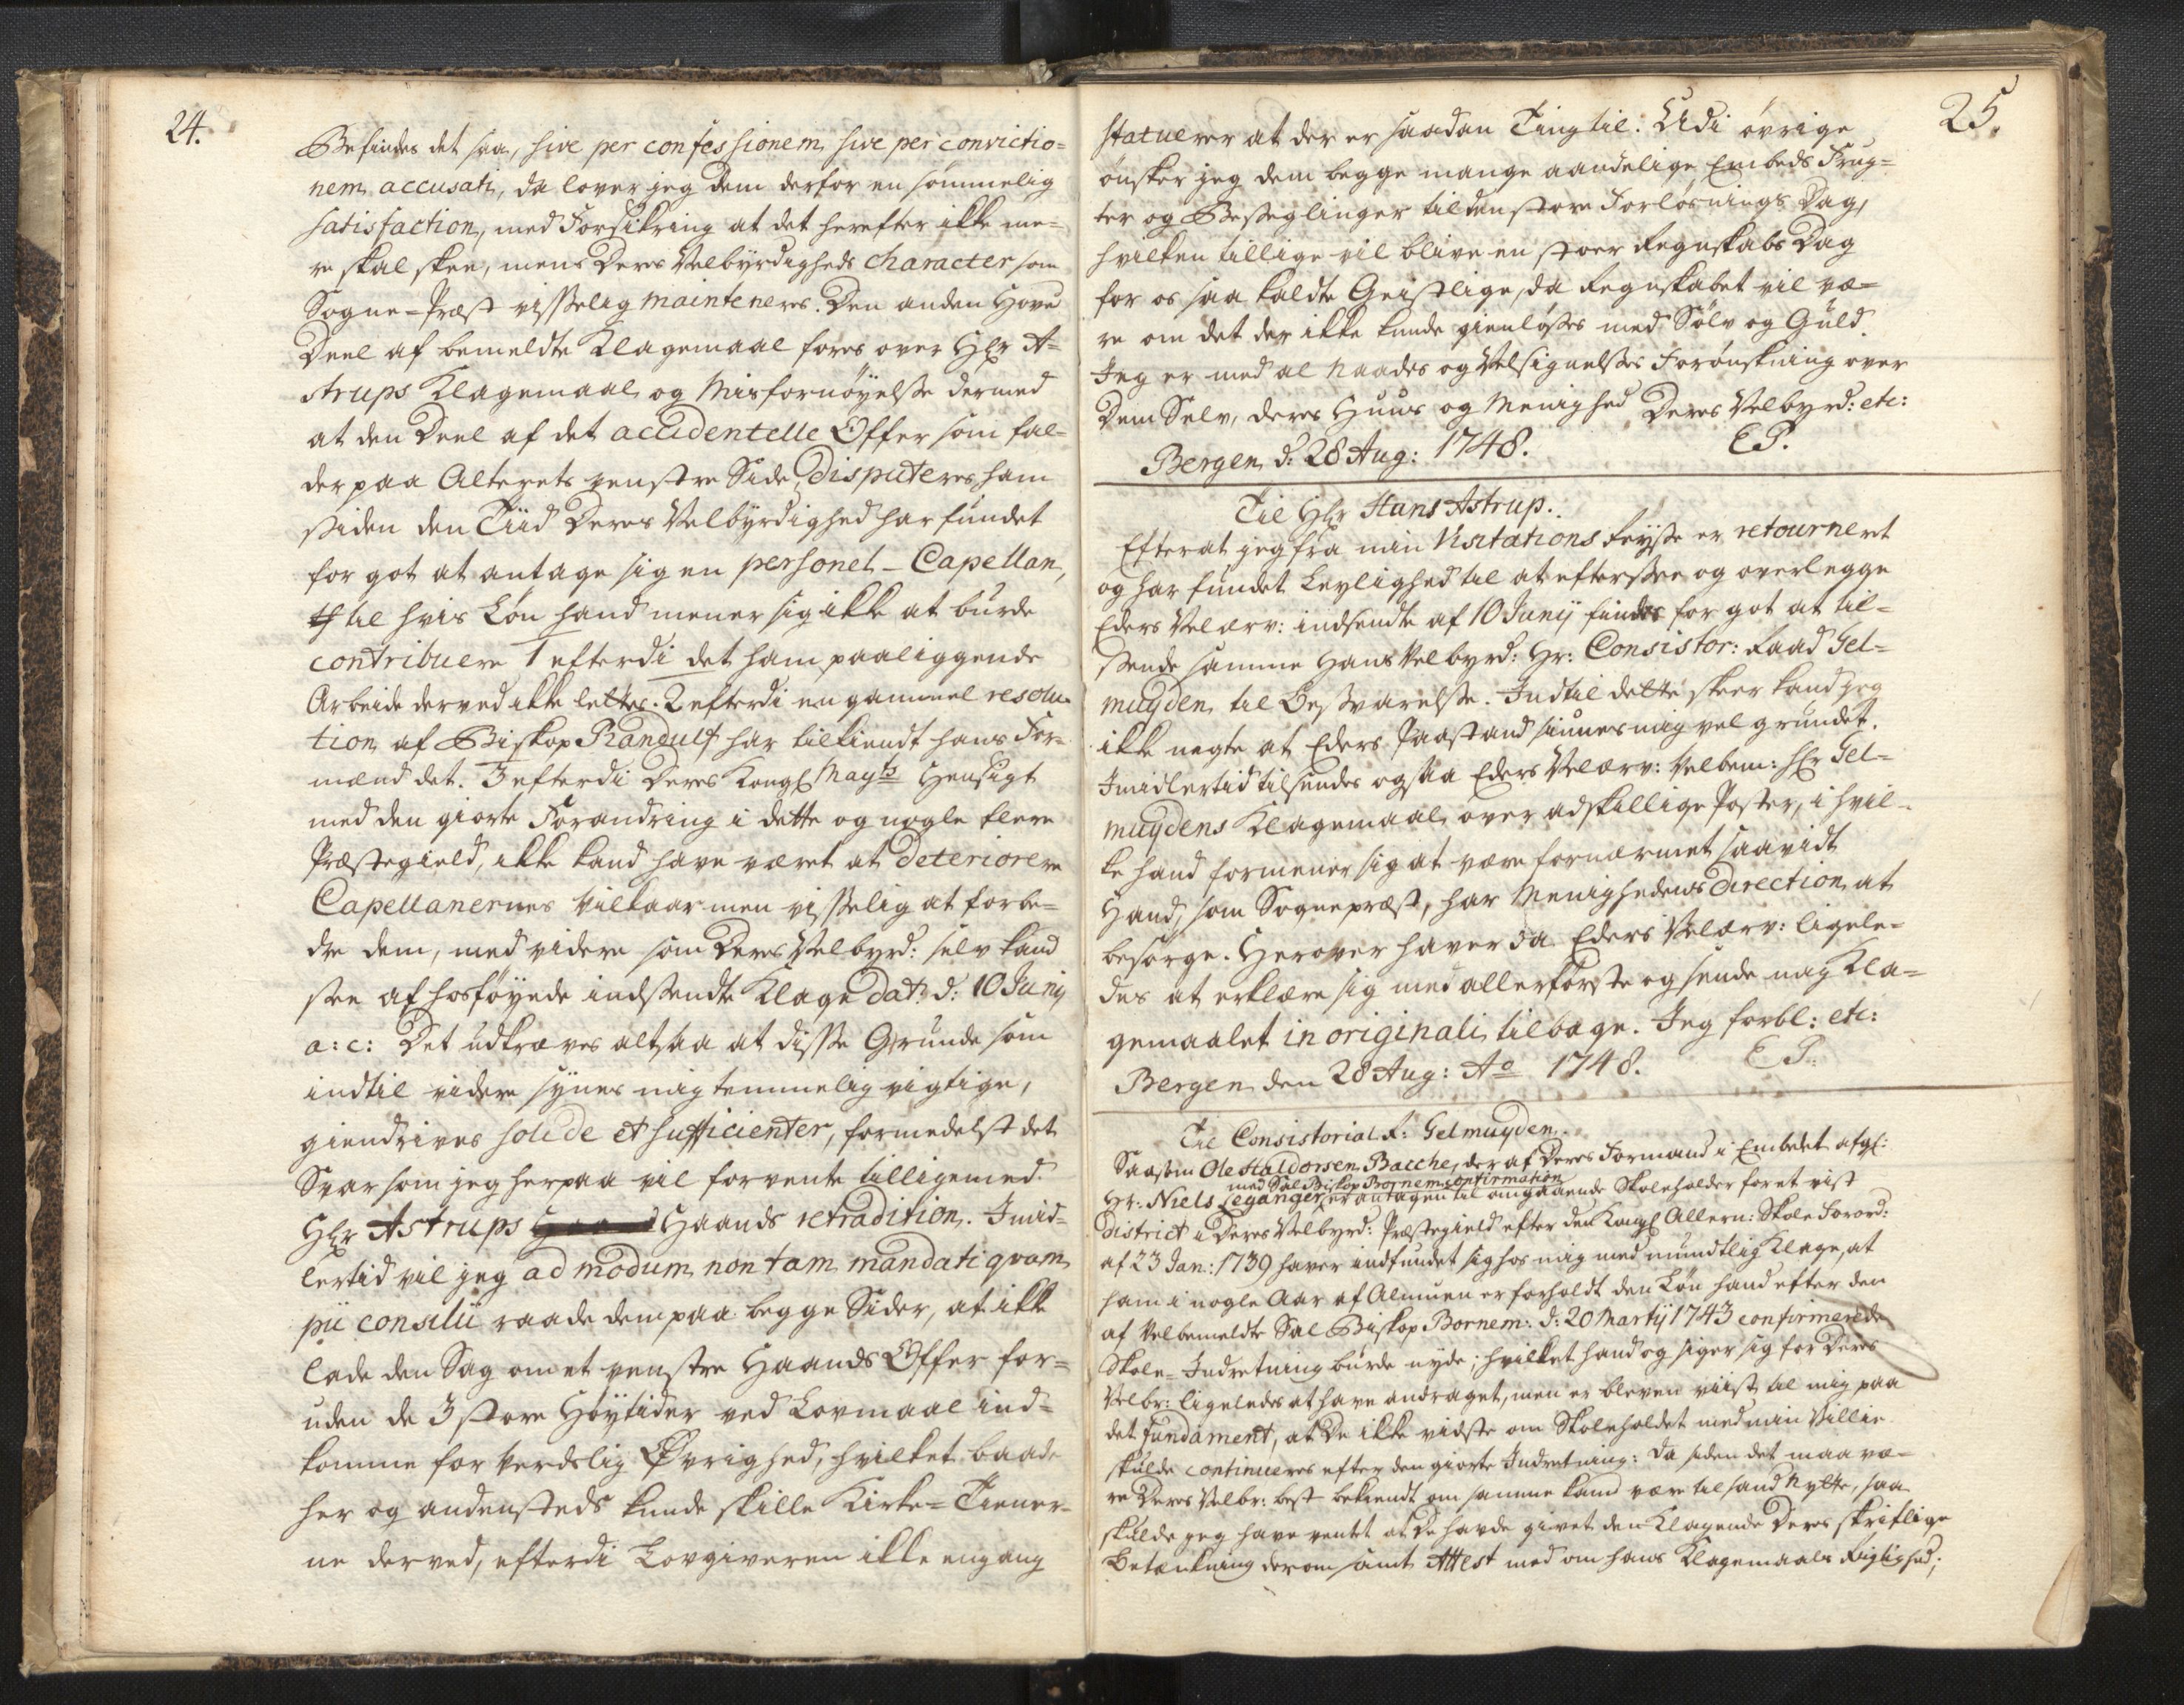 24.
Befindes det saa, sive per confessionem sive per convictio=
nem accusati, da lover jeg dem derfor en sømmelig
satisfaction, med Forsikring at det herefter ikke me=
re skal skee, mens Deres Velbyrdigheds character som
Sogne-Præst visselig mainteneres. Den anden Hoved
Deel af bemeldte Klagemaal føres over Hr A=
strups Klagemaal og Misfornøyelse dermed
at den Deel af det accidentelle Offer som fal=
der paa Alterets venstre Side, disputeres ham
siden den Tiid Deres Velbyrdighed har fundet
for got at antage sig en personel-Capellan,
til hvis Løn hand mener sig ikke at burde
contribuere 1 efterdi det ham paaliggende
Arbeide derved ikke lettes. 2 efterdi en gammel resolu=
tion af Biskop Randulf har tilkiendt hans For=
mænd det. 3 efterdi Deres Kongl Mayts Hensigt
med den giorte Forandring i dette og nogle flere
Præstegield, ikke kand have været at deteriorere
Capellanernes Vilkaar men visselig at forbe=
dre dem, med videre som Deres Velbyrd: selv kand
see af hosføyede indsendte Klage dat: d: 10 Junij
a: c: Det udkræves altsaa at disse Grunde som
indtil videre synes mig temmelig vigtige,
giendrives solide et sufficienter, formedelst det
Svar som jeg herpaa vil forvente tilligemed
Hr Astrups Haands retradition. Imid=
lertid vil jeg ad modum non tam mandati qvam
pii consilii raade dem paa begge Sider, at ikke
lade den Sag om et venstre Haands Offer for=
uden de 3 store Høytider ved Lovmaal ind=
komme for verdslig Øvrighed, hvilket baade
her og andensteds kunde skille Kirke=Tiener=
ne derved, efterdi Lovgiveren ikke engang
25.
statuerer at der er saadan Ting til. Udi øvrige
ønsker jeg dem begge mange aandelige Embeds Frug=
ter og Beseglinger til den store Forløsnings Dag,
hvilken tillige vil blive en stoer Regnskabs Dag
for os saa kaldte Geistlige, da Regnskabet vil væ=
re om det der ikke kunde gienløses med Sølv og Guld.
Jeg er med al Naades og Velsignelses Forønskning over
Dem Selv, deres Huus og Menighed Deres Velbyrd: etc:
Bergen d: 28 Aug: 1748. EP.
Til Hr Hans Astrup.
Efterat jeg fra min Visitations Reyse er retourneret
og har fundet Leylighed til at eftersee og overlegge
Eders Velærv: indsendte af 10 Junij findes for got at til=
sende samme Hans Velbyrd: Hr: Consistor: Raad Gel=
muyden til Besvarelse. Indtil dette skeer kand jeg
ikke negte at Eders Paastand siunes mig vel grundet.
Imidlertid tilsendes ogsaa Eders Velærv: Velbem: Hr Gel=
muydens Klagemaal over adskillige Poster, i hvil=
ke hand formener sig at være fornærmet saavidt
Hand, som Sognepræst, har Menighedens direction at
besørge. Herover haver da Eders Velærv: ligele=
des at erklære sig med allerførste og sende mig Kla=
gemaalet in originali tilbage. Jeg forbl: etc:
Bergen den 28 Aug: Ao 1748. EP.
Til Consistorial R: Gelmuyden.
Saasom Ole Haldorsen Bacche, der af Deres Formand i Embedet afg:
med Sal Biskop Bornem: confirmation
Hr: Niels Leganger, er antagen til omgaaende Skoleholder for et vist
district i Deres Velbyrd: Præstegield efter den Kongl Allern: Skole Forord:
af 23 Jan: 1739 haver indfundet sig hos mig med mundtlig Klage, at
ham i nogle Aar af Almuen er forholdt den Løn hand efter den
af Velbemeldte Sal Biskop Bornem: d: 20 Martij 1743 confirmerede
Skole=Indretning burde nyde; hvilket hand og siger sig for Deres
Velbr: ligeledes at have andraget, men er bleven viist til mig paa
det fundament, at De ikke vidste om Skoleholdet med min Villie
skulde continueres efter den giorte Indretning: Da siden det maa væ=
re Deres Velbr: best bekiendt om samme kand være til sand Nytte, saa
skulde jeg have ventet at De havde givet den Klagende Deres skriftlige
Betænkning derom samt Attest med om hans Klagemaals Rigtighed;